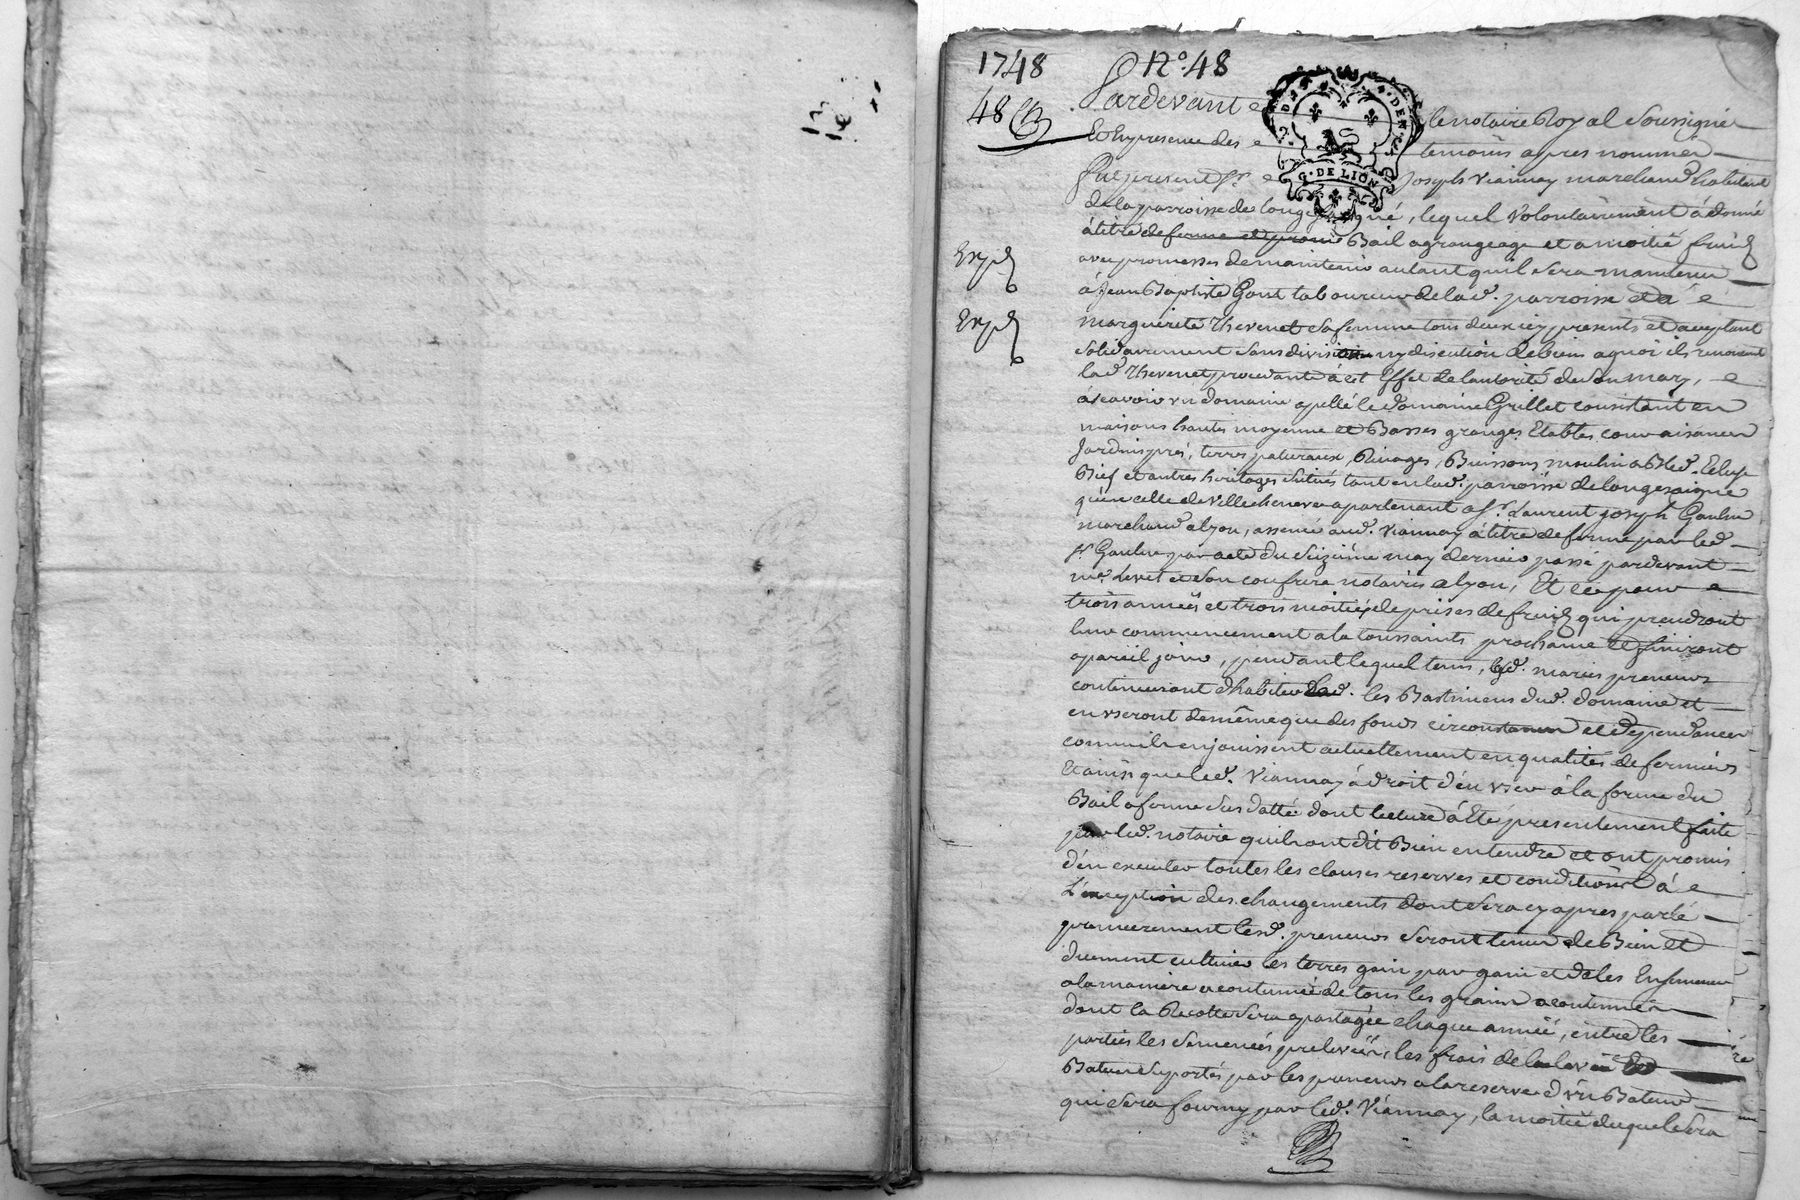 1748
N.o 48
48
DEN
G. DE LION
Pardevant le notaire Royal Soussigné
Et En presence des temoins apres nommés
Fut present Sr. Joseph Viannay marchand habitant
de la parroisse de longessaigne, lequel volontairement à donné
à titre de ferme et prome Bail a grangeage et a moitié fruits
avec promesses de maintenir autant quil sera maintenu
à Jean Baptiste laboureur de lad. parroisse et à
marguerite Thevenet sa femme tous deux icy presents et acceptant
solidairement sans division ny discution de biens a quoi ils renoncent
lad. Thevenet procedante à cet Effet de lautorité de son mary,
à scavoir un domaine appellé le domaine Grillet consistant en
maisons hautes moyenne et Basses granges Etables, cour aisances
Jardins prés, terres paturaux, Rivages, Buissons moulin a Bled. Ecluse
Bief et autres heritages situés tant en lad. parroisse de longesaigne
qu'en celle de Villechenesve apartenant a Sr. Laurent joseph Gaulne
marchand a lyon, assencé aud. Viannay à titre de ferme par led.
Sr. Gaulne par acte du seizième may dernier passé pardevant
me. et son confrere notaires a lyon, Et ce pour
trois années et trois moitiés de prises de fruits qui prendront
leur commencement a la toussaints prochaine et finiront
a pareil jour, pendant lequel tems, lesd. mariés preneurs
continueront d'habiter les Bastimens dud. domaine et
en useront de même que des fonds circonstances et dependances
comme ils en jouissent actuellement en qualités de fermiers
Et ainsi que led. Viannay à droit d'en user à la forme du
Bail a ferme sus datté dont lecture à Eté presentement faite
par led. notaire quils ont dit Bien entendre et ont promis
d'en executer toutes les clauses reserves et conditions à
L'exception des changements dont sera cy apres parlé
premierement lesd. preneurs seront tenus de Bien et
duement cultiver les terres gain par gain et de les Ensemencer
a la maniere acoutumée de tous les grains acoutumés
dont la Recolte sera apartagée chaque année, entre les
parties les semences prelevées, les frais de la levée et
Bateure suportés par les preneurs a la reserve d'un Bateur
qui sera fourny par led. Viannay, la moitié duquel sera